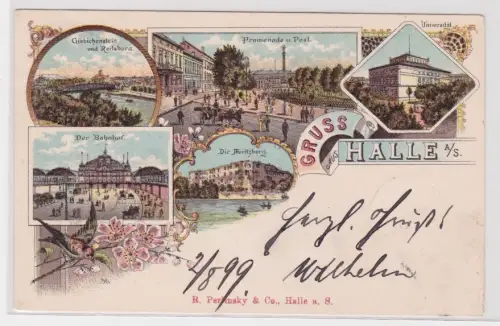 Giebichenstein
und Reilsburg
Promenade u. Post.
Universität
Der Bahnhof.
Die Moritzburg.
GRUSS
aus
HALLE A/S.
Herzl. Gruß
2/8 99 Wilhelm
& Co., Halle a. S.